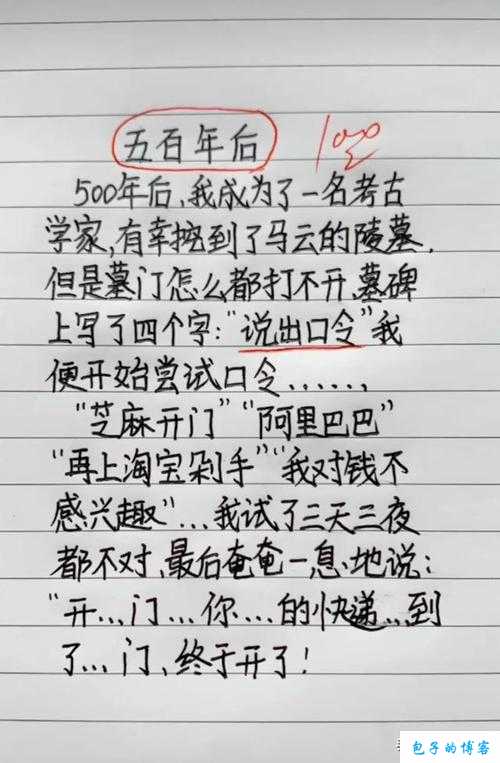 五百年后
100
500年后,我成为了一名考古
学家,有幸挖到了马云的陵墓,
但是墓门怎么都打不开,墓碑
上写了四个字:“说出口令”我
便开始尝试口令......,
“芝麻开门”“阿里巴巴”
“再上淘宝剁手”“我对钱不
感兴趣”...我试了三天三夜
都不对,最后奄奄一息地说:
“开...门...你....的快递...到
了...门、终于开了!
包子的博客